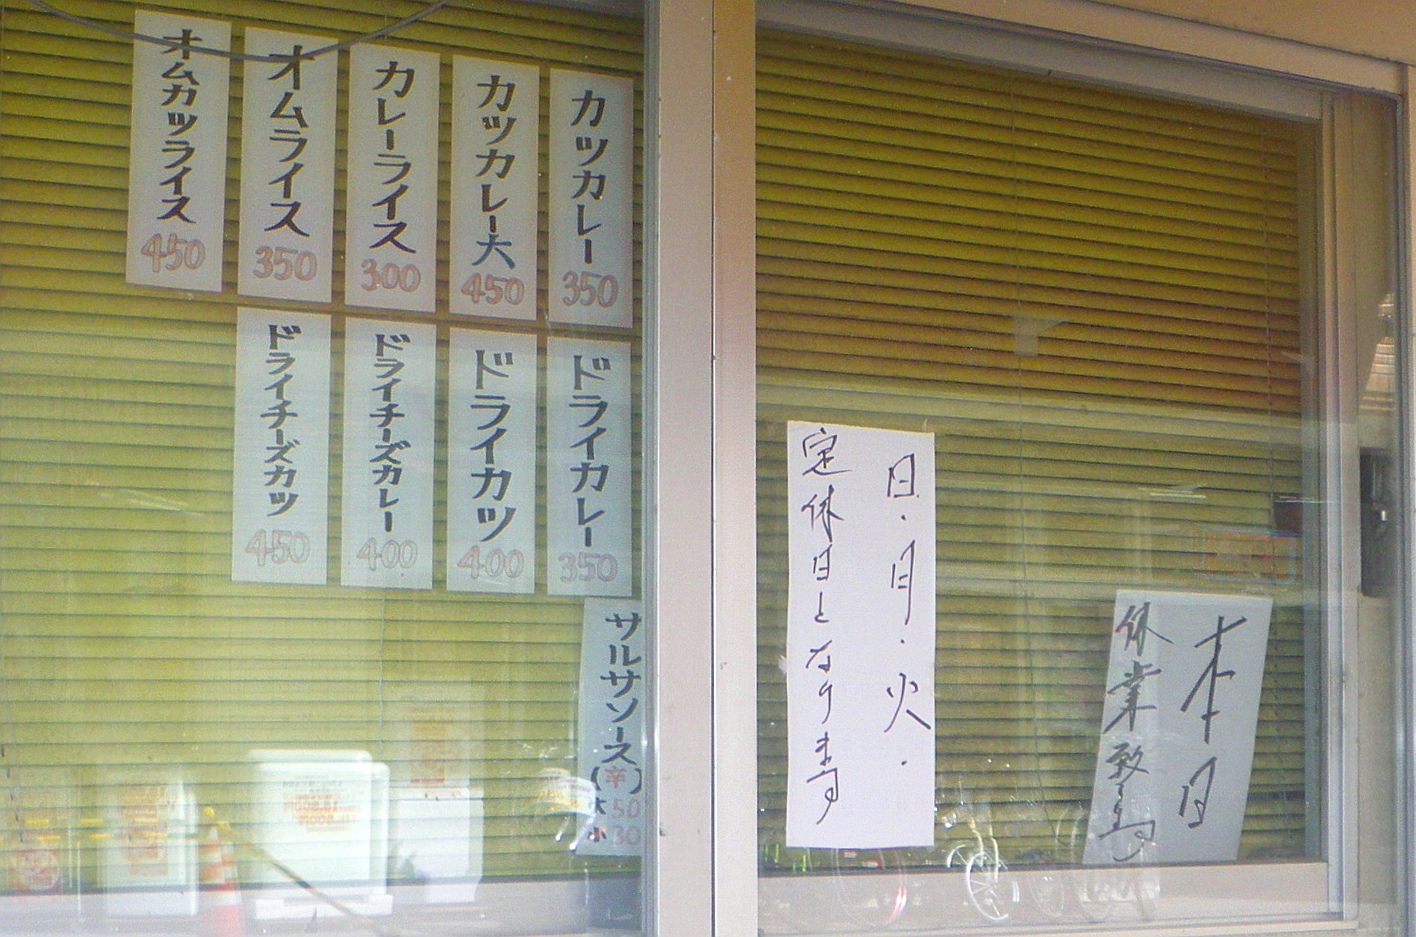 カツカレー
350
カツカレー大
450
カレーライス
300
オムライス
350
オムカツライス
450
ドライカレー
350
ドライカツ
400
ドライチーズカレー
400
ドライチーズカツ
450
サルサソース
(辛)
大 50
小 30
日・月・火・
定休日となります
本日
休業致します